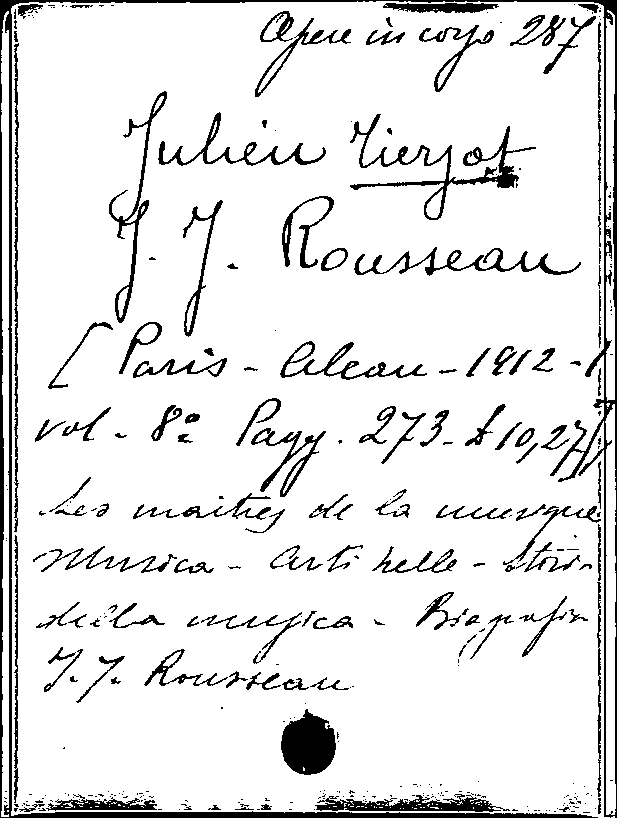 Opere in corso 287
Julien Tiersot
J. J. Rousseau
[Paris - Alcan - 1912 - 1
vol - 8º Pagg. 273 - £ 10,27]
Les maitres de la musique
Musica - Arti belle - Storia
della musica - Biografia
J. J. Rousseau